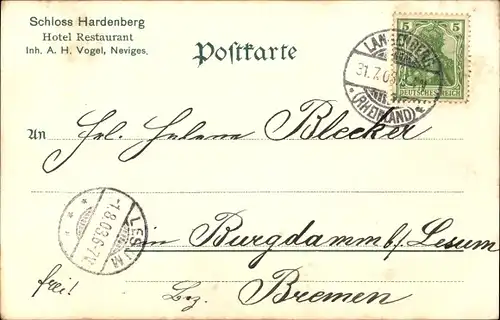 Schloss Hardenberg
Hotel Restaurant
Inh. A. H. Vogel, Neviges.
Postkarte
LANGENBERG
31.7.03
(RHEINLAND)
5 5
DEUTSCHES REICH
An Frl. Helene Blecker
LESUM
1.8.03.6-7V
in Burgdamm b/ Lesum
frei!
Bez. Bremen